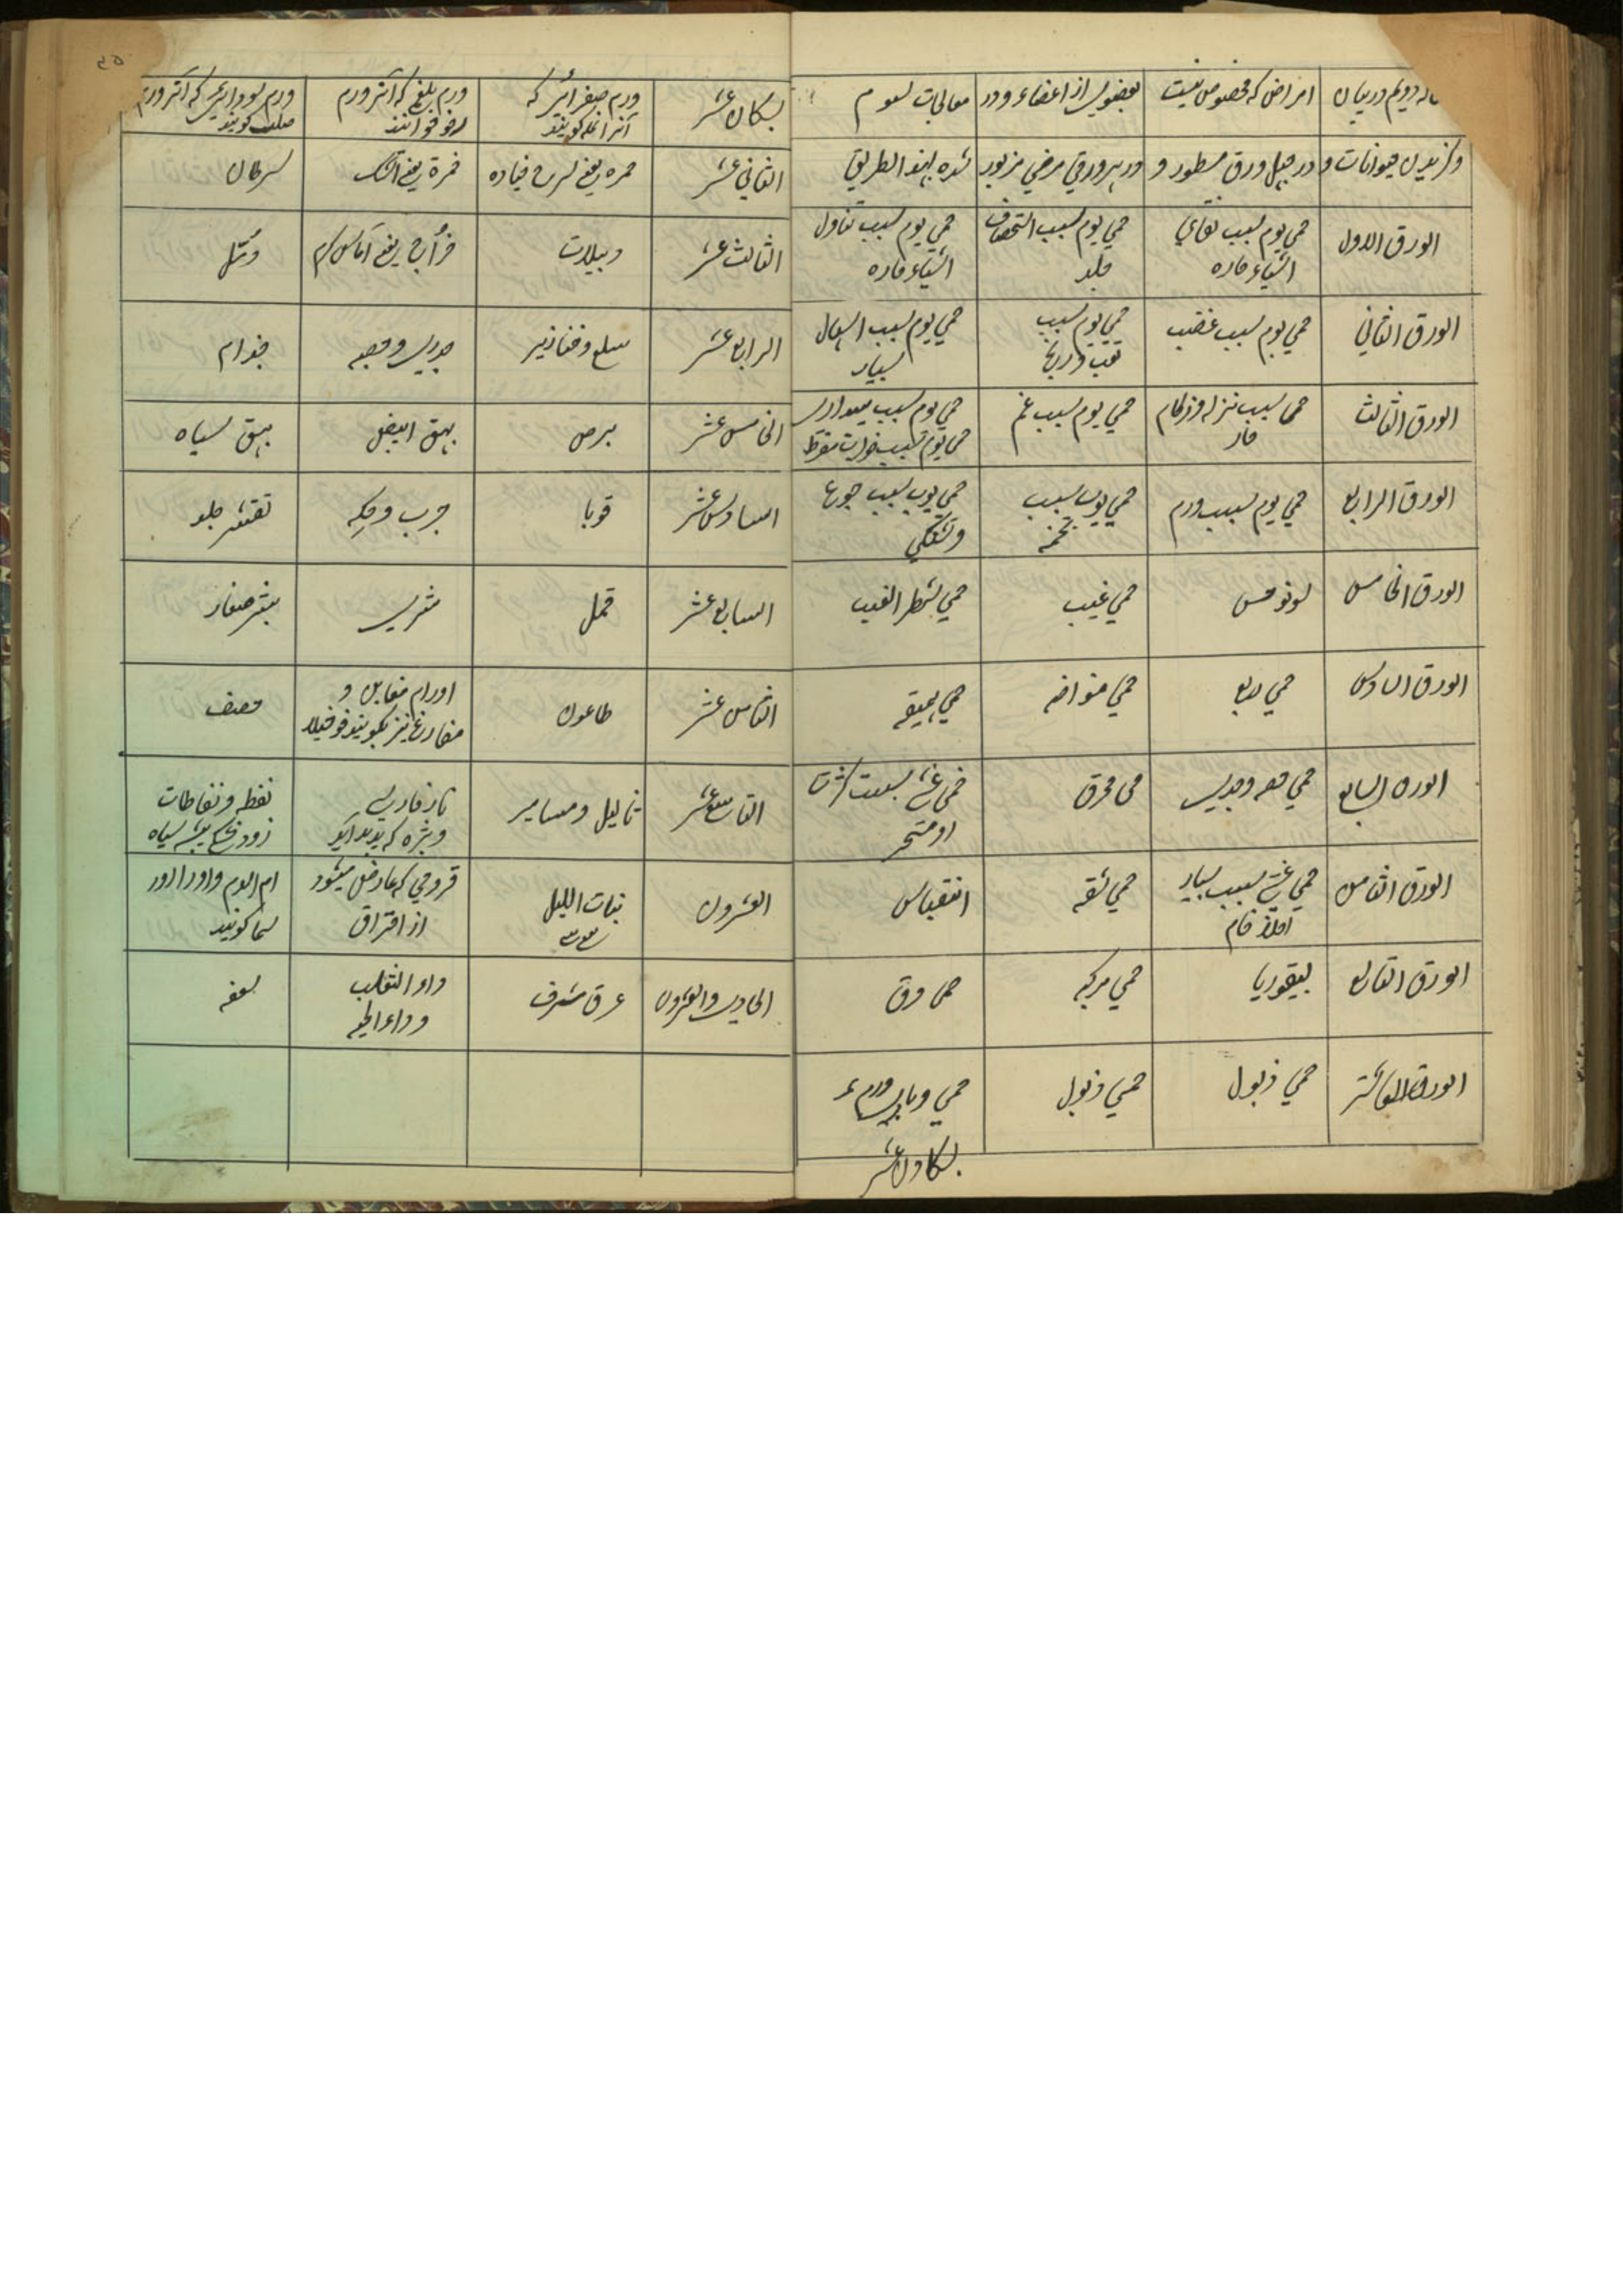 دویم در بیان امراض که مخصوص نیست بعضوی از اعضاء و در معالجات سموم
و گزیدن حیوانات و در چهل ورق مسطور و در هر ورقی مرضی مزبور شده بهذا الطریق
الورق الاول
حمی یوم بسبب
اشیاء حاره
حمی یوم بسبب استحصاف
جلد
حمی یوم بسبب تناول
اشیاء حاره
الورق الثانی
حمی یوم بسبب غضب
حمی یوم بسبب
تعب و رنج
حمی یوم بسبب اسهال
بسیار
الورق الثالث
حمی بسبب نزله و زکام
حار
حمی یوم بسبب غم
حمی یوم بسبب بیداری
حمی یوم بسبب مفرط
الورق الرابع
حمی یوم بسبب ورم
حمی یوم بسبب
تخمه
حمی یوم بسبب جوع
و تشنگی
الورق الخامس
سونوخس
حمی غب
حمی شطر الغب
الورق السادس
حمی ربع
حمی
حمی
الورق السابع
حمی حصبه و جدری
حمی محرق
حمی غشی بسبب
الورق الثامن
حمی غشی بسبب بسیاری
اخلاط خام
حمی
انفیاس
الورق التاسع
لیفوریا
حمی مرکبه
حمی دق
الورق العاشر
حمی ذبول
حمی ذبول
حمی وبای
الحادی عشر
الحادی عشر
ورم صفراوی که
آنرا نمله گویند
ورم بلغمی که آنرا ورم
رخو خوانند
ورم سوداوی که آنرا ورم
صلب گویند
الثانی عشر
حمره یعنی سرخ باده
جمرة یعنی آتشک
سرطان
الثالث عشر
دبیلات
خراج یعنی آماس گرم
دمل
الرابع عشر
سلع و خنازیر
جدری و حصبه
جذام
الخامس عشر
برص
بهق ابیض
بهق سیاه
السادس عشر
قوبا
جرب و حکه
تقشر جلد
السابع عشر
قمل
شری
بثر صغار
الثامن عشر
طاعون
اورام مغابن و
حصف
التاسع عشر
ثالیل و مسامیر
نار فارسی
و بثره که پدید آید
نفطه و نفاطات
العشرون
بنات اللیل
قروحی که عارض میشود
از احتراق
ام الدم و اورا
گویند
الحادی والعشرون
عرق
داء الثعلب
و داء الحیه
سعفه